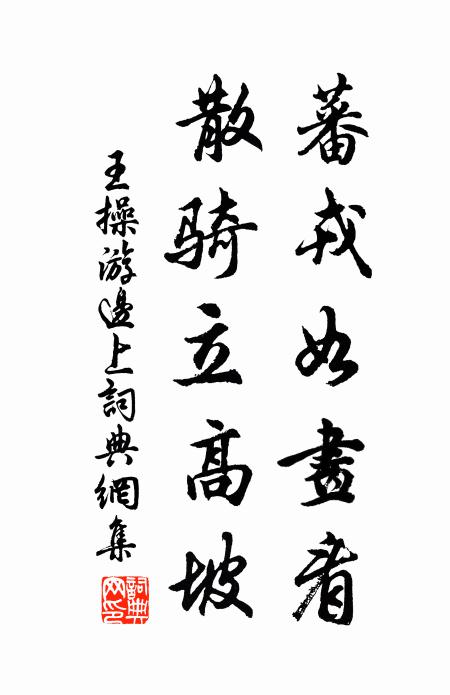 蕃戎如畫者
散骑立高坡
王操游邊上詞典網集
詞典网印